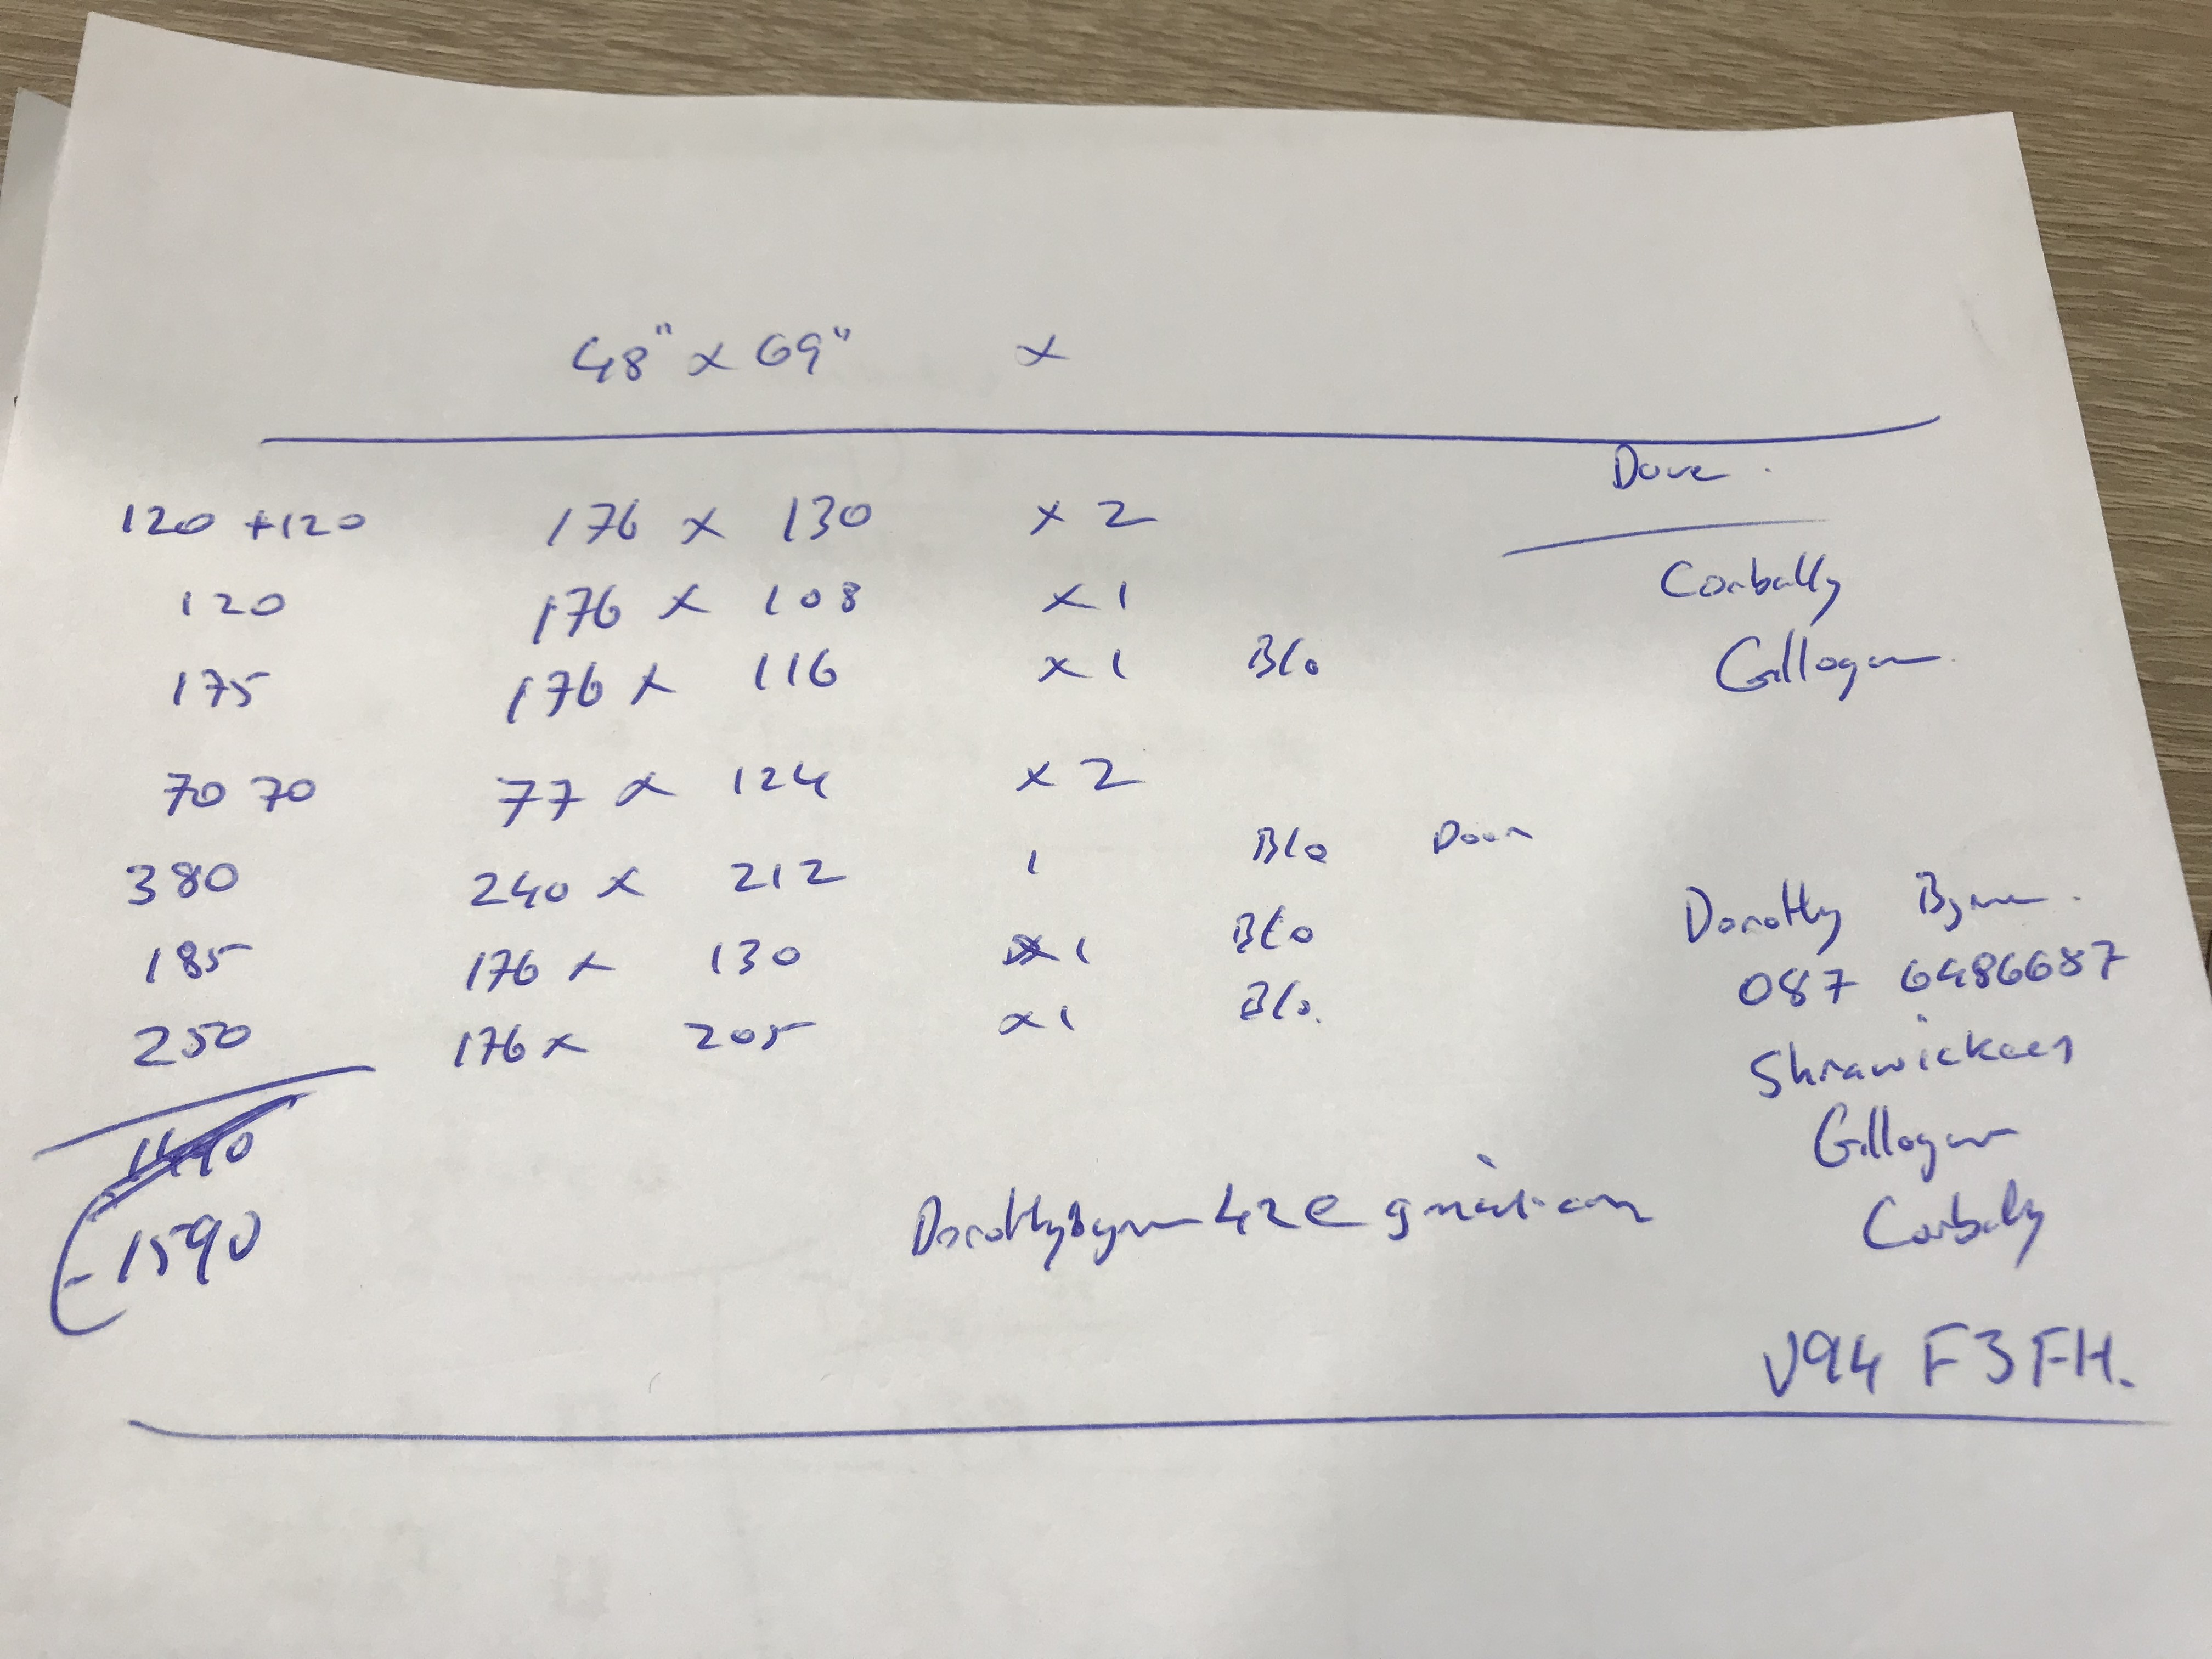 48" x 69" x
Dove.
120 +120 176 x 130 x 2
Corbally
120 176 x 108 x 1
175 176 x 116 x 1 Blo
Gillogue
70 70 77 x 124 x 2
380 240 x 212 1 Blo Door
Dorothy Byrne.
185 176 x 130 x1 Blo
087 6486687
250 176 x 205 x1 Blo.
Shrawickeen
Gillogue
1590
Corbally
V94 F3FH.